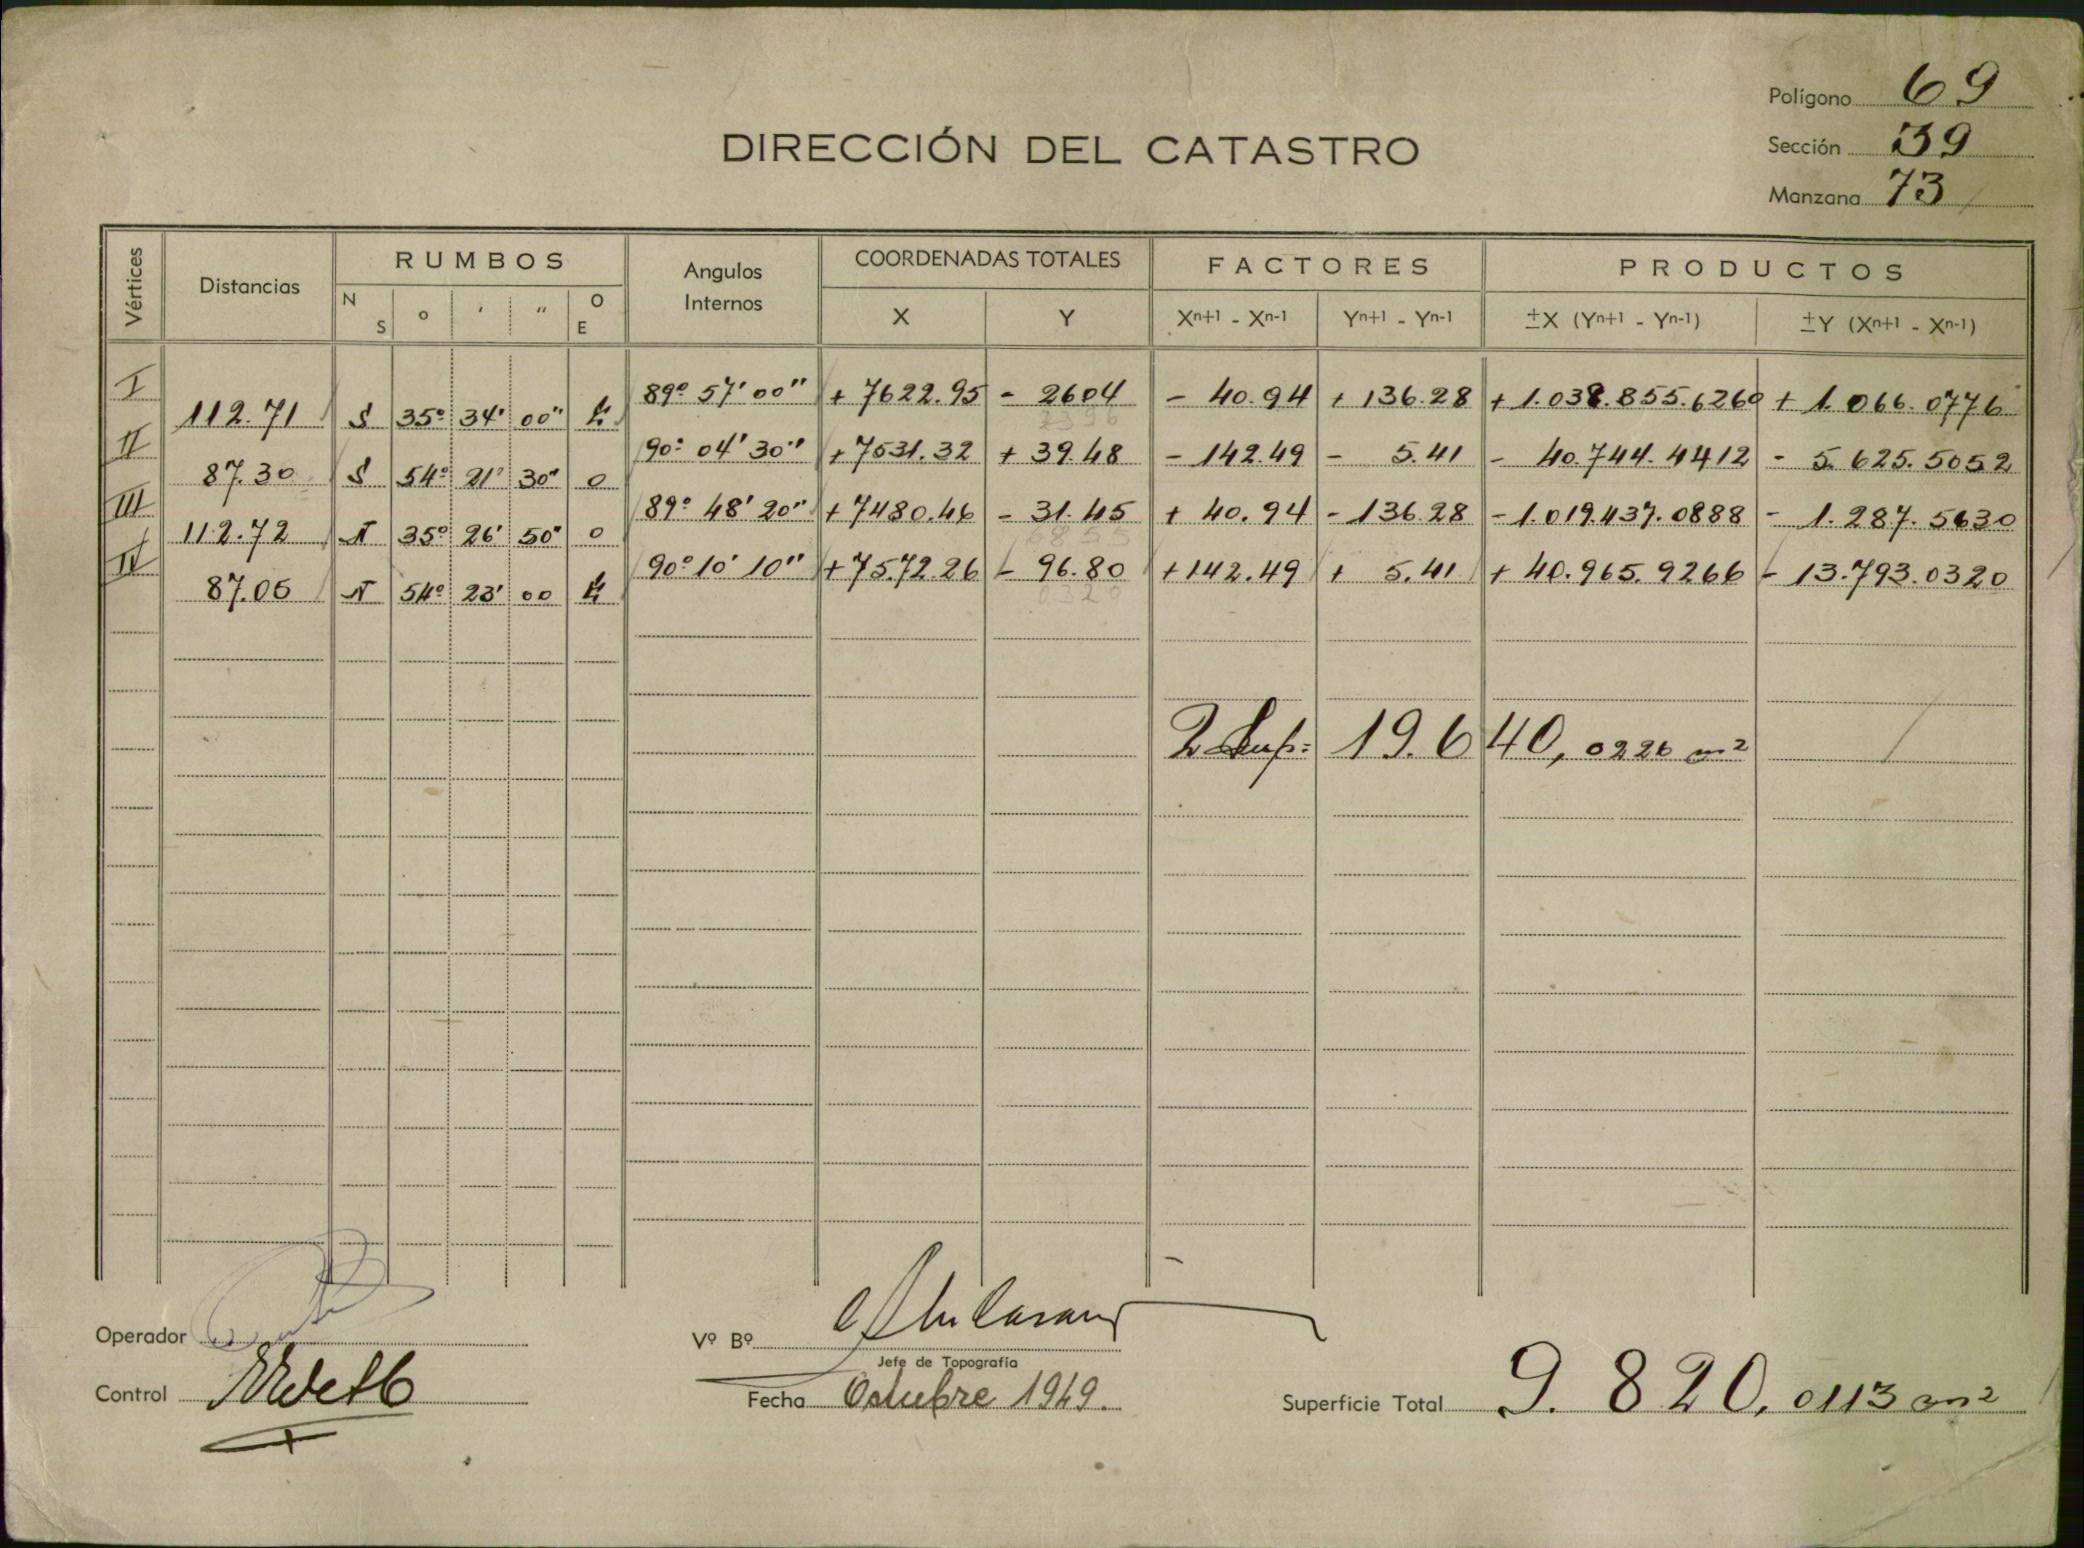 Polígono 69
DIRECCIÓN DEL CATASTRO
Sección 39
Manzana 73
Vértices Distancias RUMBOS Angulos Internos COORDENADAS TOTALES FACTORES PRODUCTOS
N S ° ' " O E X Y Xn+1 - Xn-1 Yn+1 - Yn-1 ±X (Yn+1 - Yn-1) ±Y (Xn+1 - Xn-1)
I 89° 57' 00" + 7622.95 - 2604 - 40.94 + 136.28 + 1.038.855.6260 + 1.066.0776
112.71 S 35° 34' 00" E
II 90° 04' 30" + 7531.32 + 39.48 - 142.49 - 5.41 - 40.744.4412 - 5.625.5052
87.30 S 54° 21' 30" O
III 89° 48' 20" + 7480.46 - 31.45 + 40.94 - 136.28 - 1.019.437.0888 - 1.287.5630
112.72 N 35° 26' 50" O
IV 90° 10' 10" + 7572.26 - 96.80 + 142.49 + 5.41 + 40.965.9266 - 13.793.0320
87.05 N 54° 23' 00 E
2 Sup= 19.640,0226 m2
Operador
Vº Bº
Jefe de Topografía
Control
Fecha Octubre 1949.
Superficie Total 9.820,0113 m2